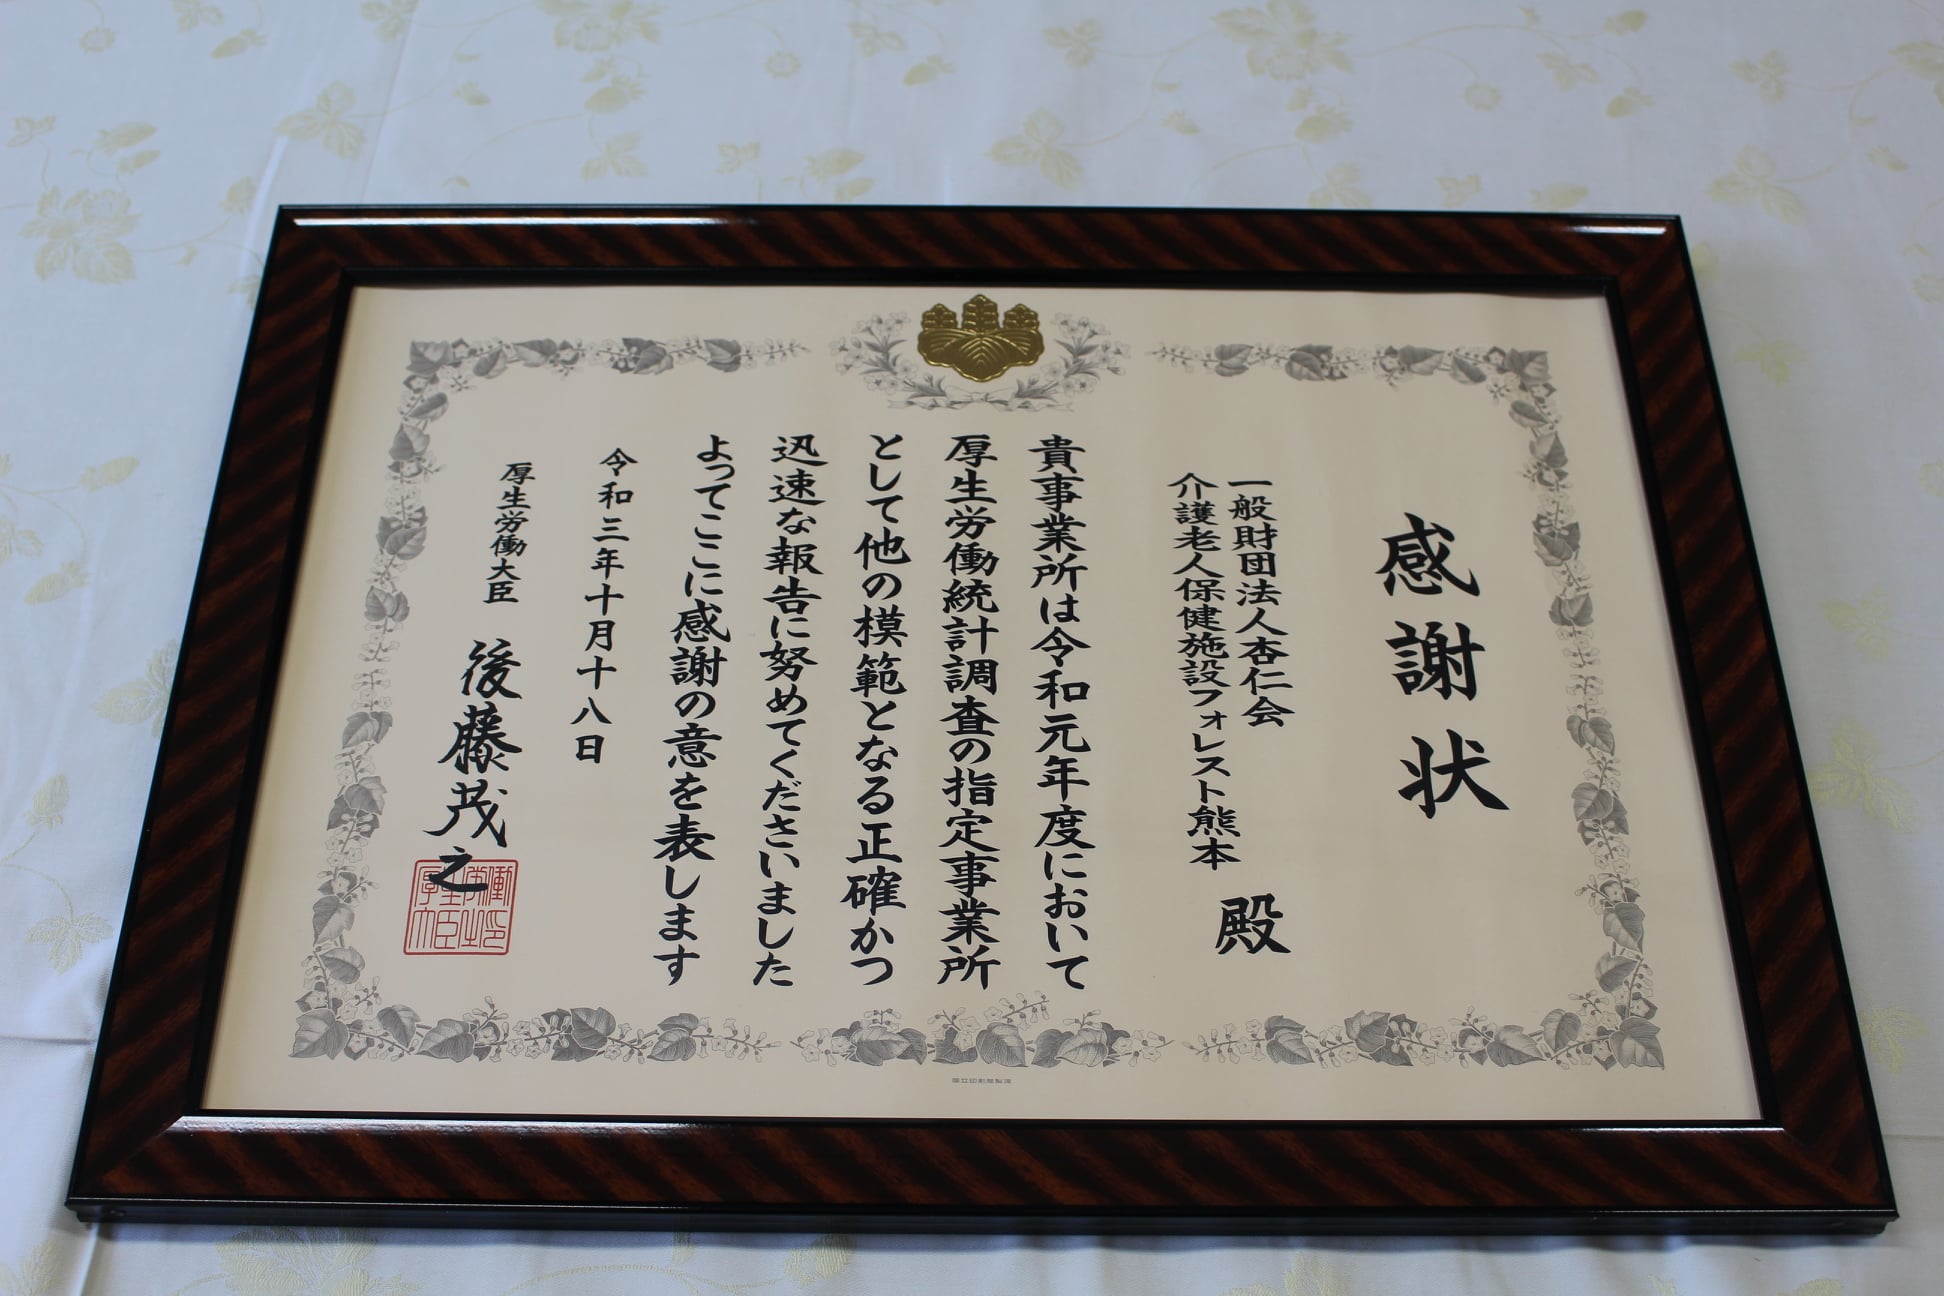 感謝状
一般財団法人杏仁会
介護老人保健施設フォレスト熊本
殿
貴事業所は令和元年度において
厚生労働統計調査の指定事業所
として他の模範となる正確かつ
迅速な報告に努めてくださいました
よってここに感謝の意を表します
令和三年十月十八日
厚生労働大臣
後藤茂之
国立印刷局製造